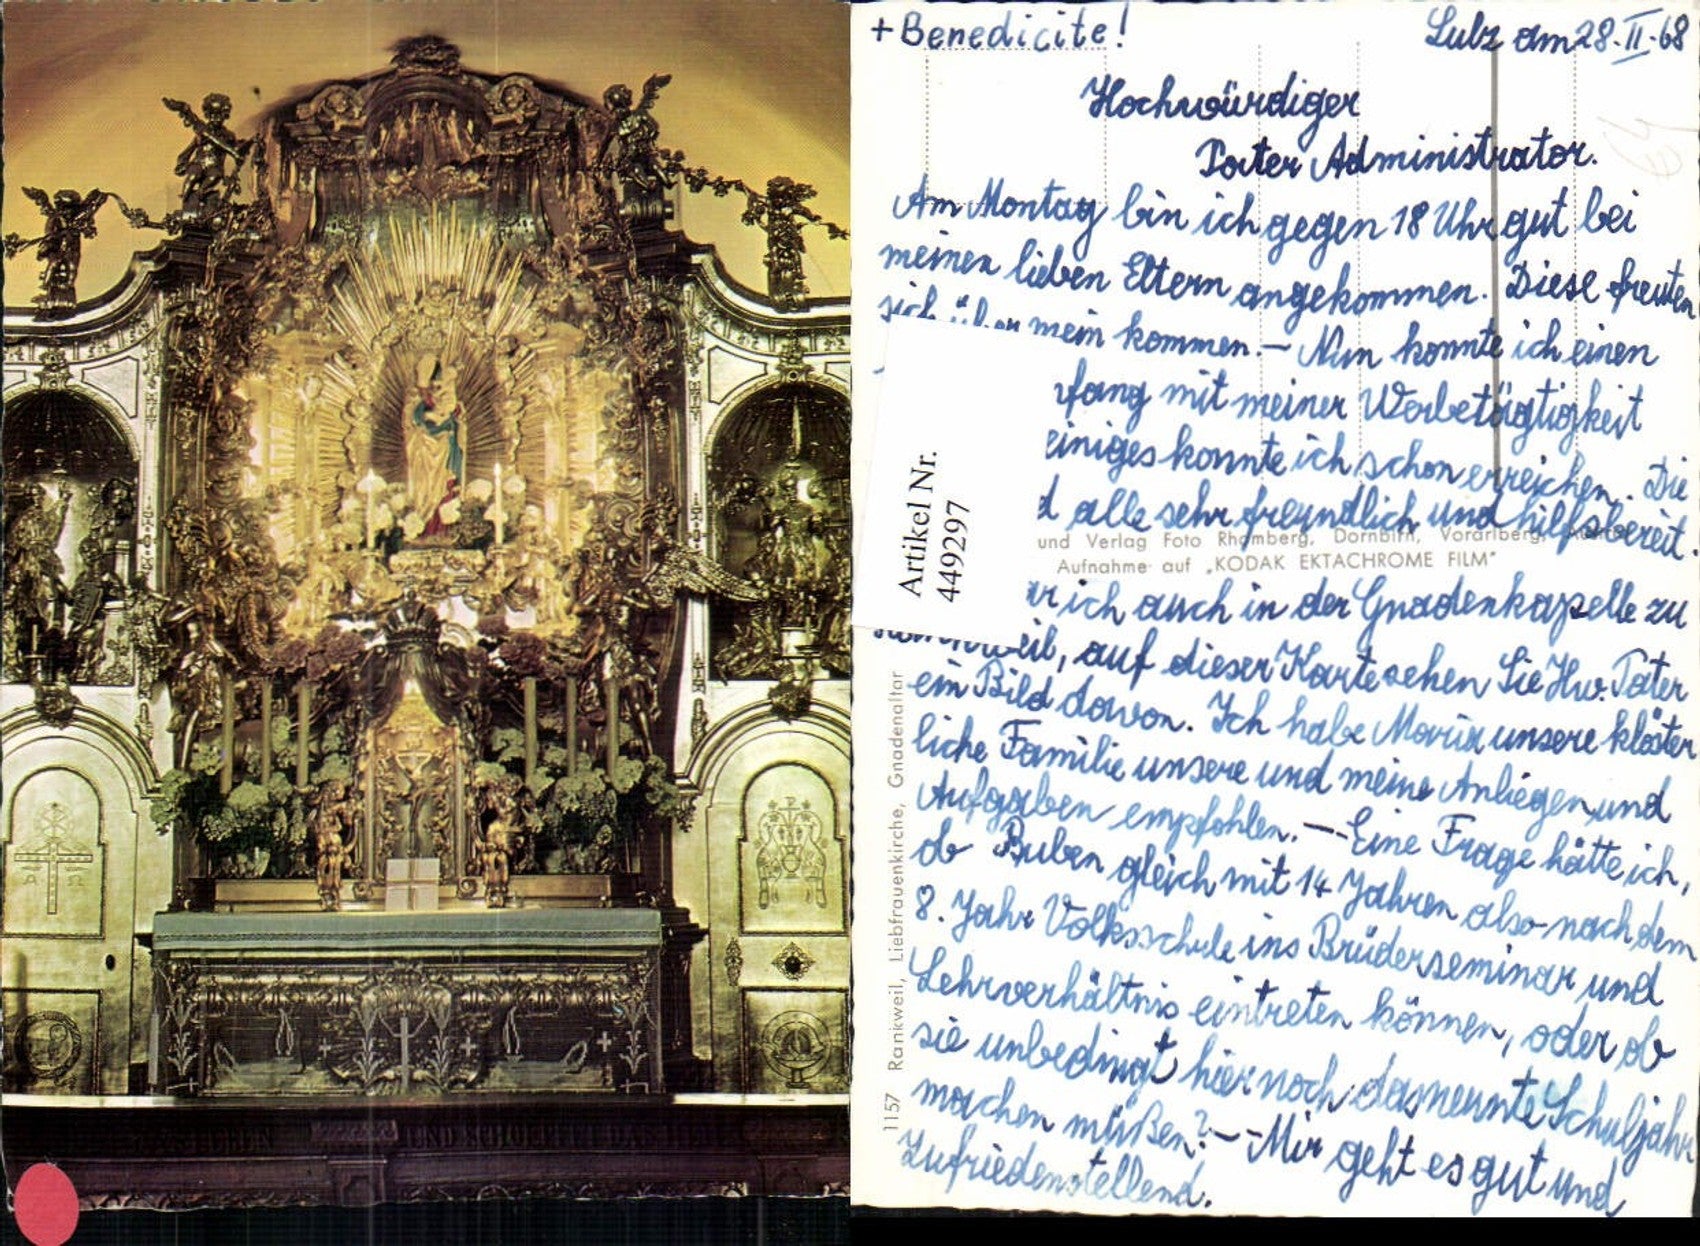 + Benedicite!
Sulz am 28.II.68
Hochwürdiger
Pater Administrator.
Am Montag bin ich gegen 18 Uhr gut bei
meinen lieben Eltern angekommen. Diese freuten
sich über mein kommen. — Nun konnte ich einen
fang mit meiner Werbetätigkeit
einiges konnte ich schon erreichen. Die
d alle sehr freundlich und hilfsbereit.
und Verlag Foto Rhomberg, Dornbirn, Vorarlberg,
Aufnahme auf „KODAK EKTACHROME FILM"
r ich auch in der Gnadenkapelle zu
eil, auf dieser Karte sehen Sie Hw. Pater
ein Bild davon. Ich habe Maria unsere klöster
liche Familie unsere und meine Anliegen und
Aufgaben empfohlen. — Eine Frage hätte ich,
ob Buben gleich mit 14 Jahren also nach dem
8. Jahr Volksschule ins Brüderseminar und
Lehrverhältnis eintreten können, oder ob
sie unbedingt hier noch das neunte Schuljahr
machen müßen? — Mir geht es gut und
Zufriedenstellend.
Artikel Nr.
449297
1157 Rankweil, Liebfrauenkirche, Gnadenaltar